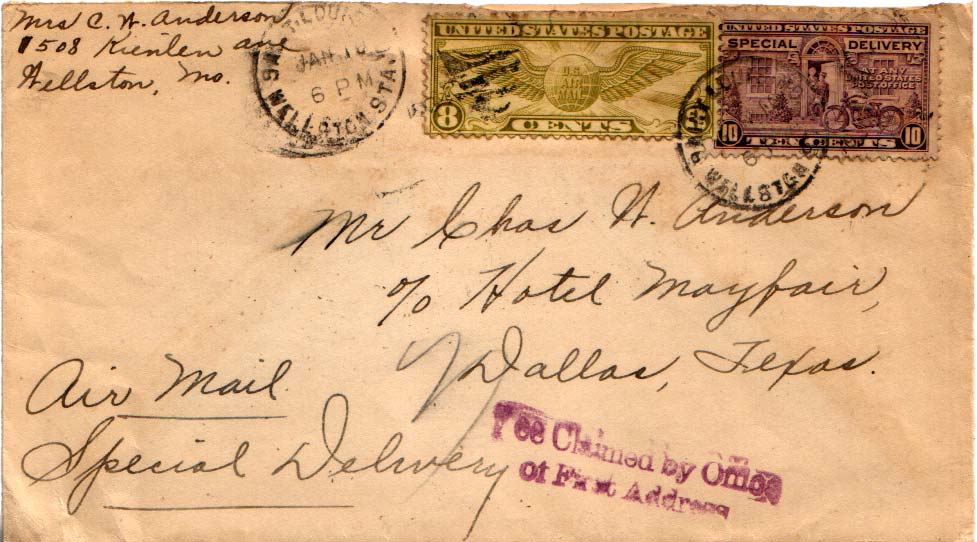 Mrs C. W. Anderson
1508 Kienlen ave
Wellston, Mo.
JAN 10
6 PM
WELLSTON STA.
UNITED STATES POSTAGE
U.S.
AIR MAIL
8 CENTS
UNITED STATES POSTAGE
SPECIAL DELIVERY
AT ANY
UNITED STATES
POST OFFICE
10 TEN CENTS 10
WELLSTON
Mr Chas W. Anderson
c/o Hotel Mayfair,
Dallas, Texas.
Air Mail
Special Delivery
Fee Claimed by Office
of First Address